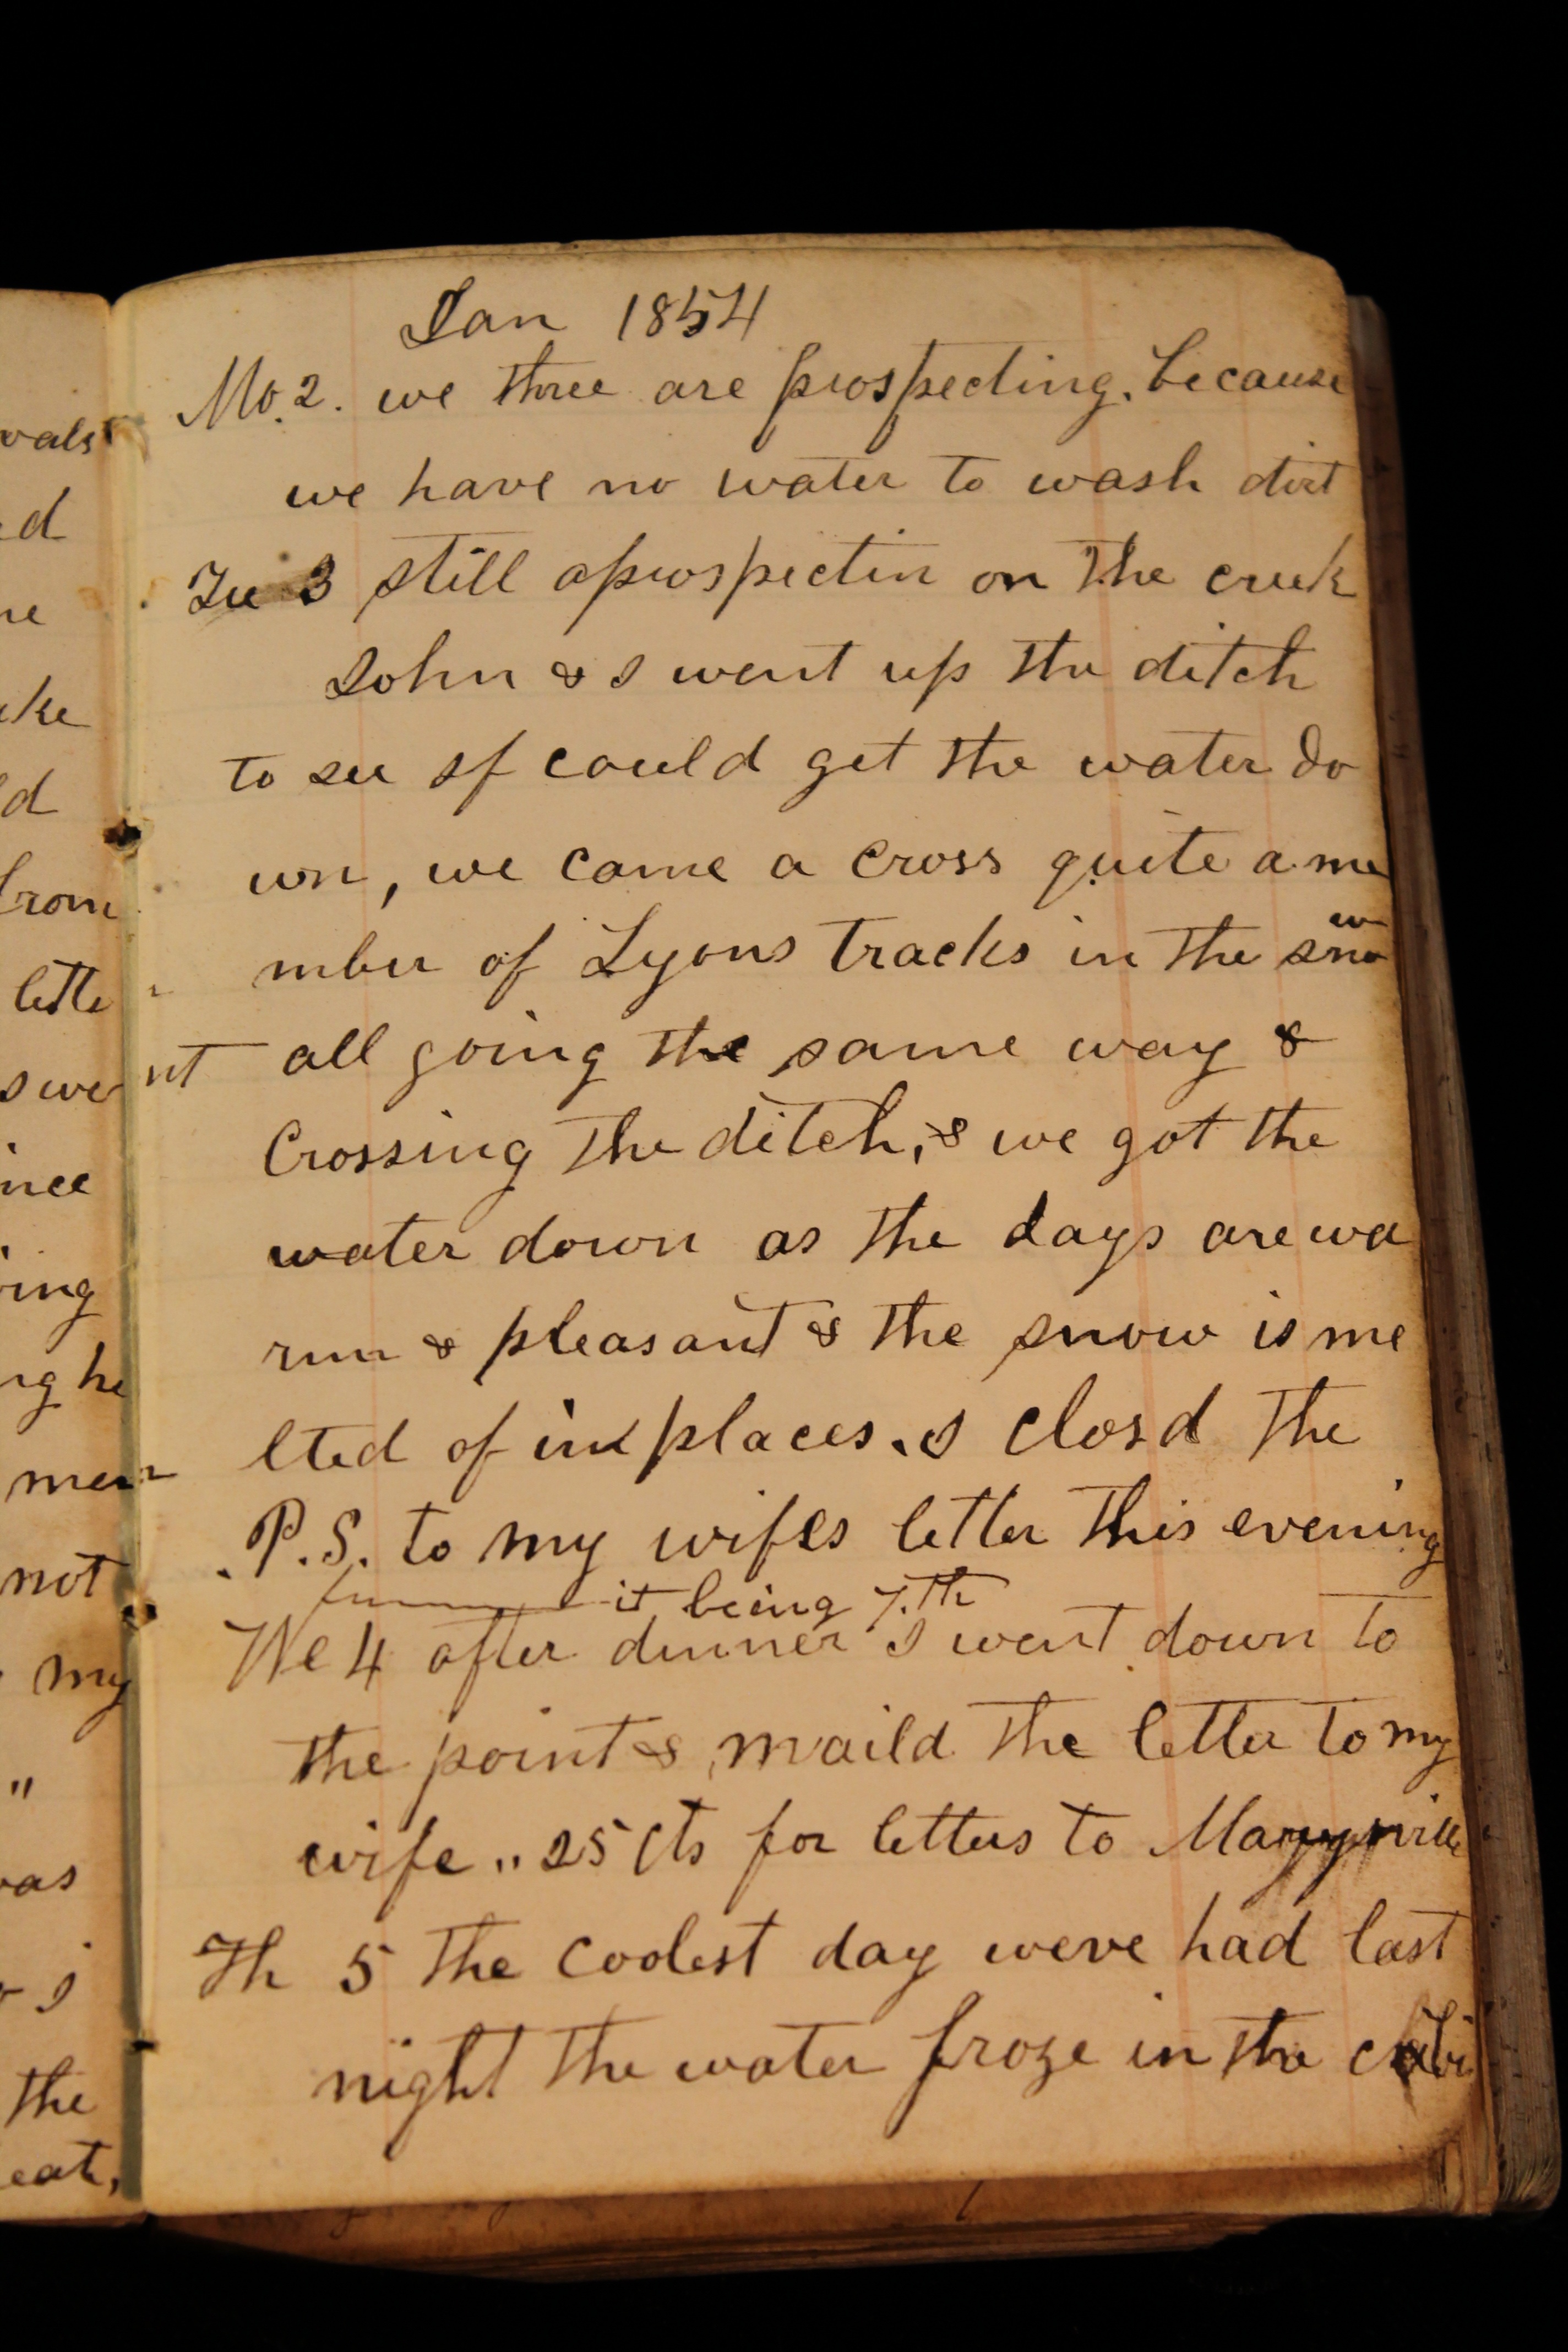 vals
d
ne
ke
d
from
lette
s we
ince
ing
ng he
men
not
my
"
as
I
the
eat,
Jan 1854
Mo. 2. we three are prospecting. because
we have no water to wash dirt
Tu 3 still aprospectin on the creek
John & I went up the ditch
to see If could get the water do
wn, we came a cross quite a nu
mber of Lyons tracks in the sno
w
nt all going the same way &
Crossing the ditch, & we got the
water down as the days are wa
rm & pleasant & the snow is me
lted of in places. I closd the
P.S. to my wifes letter this evening
it being 7.th
We 4 after dinner I went down to
the point & maild the letter to my
wife „ 25 cts for letters to Marysville
Th 5 the coolest day weve had last
night the water froze in the cabi